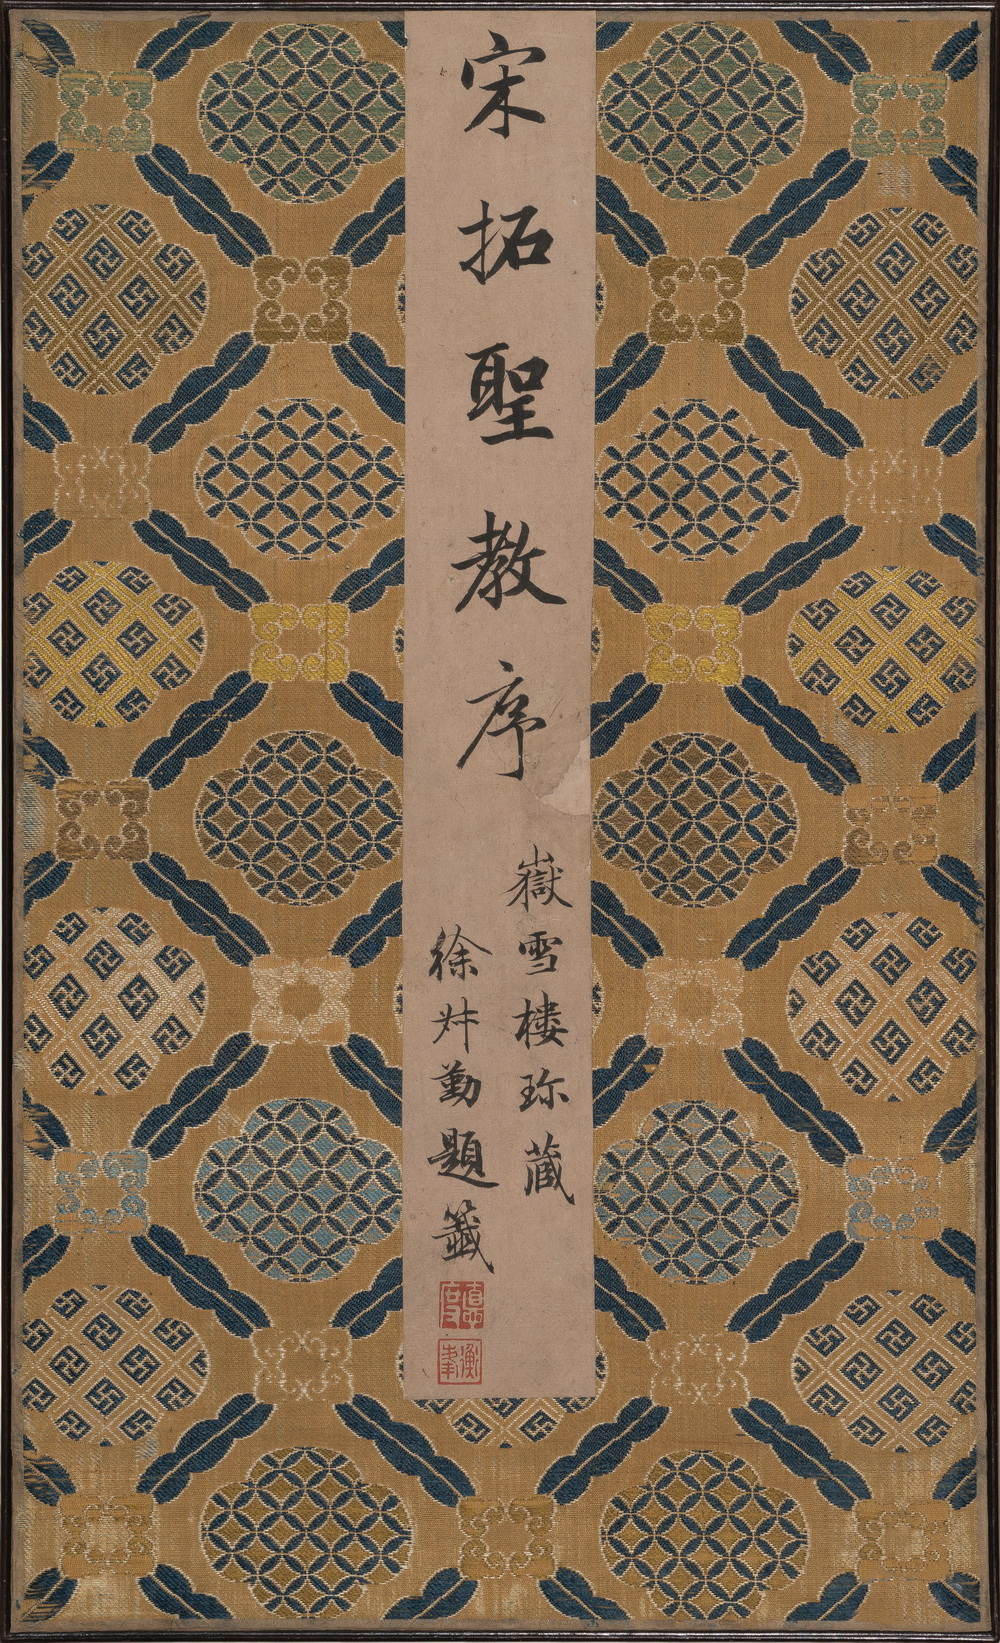 宋拓聖教序
嶽雪樓珎藏
徐叔勤題籤